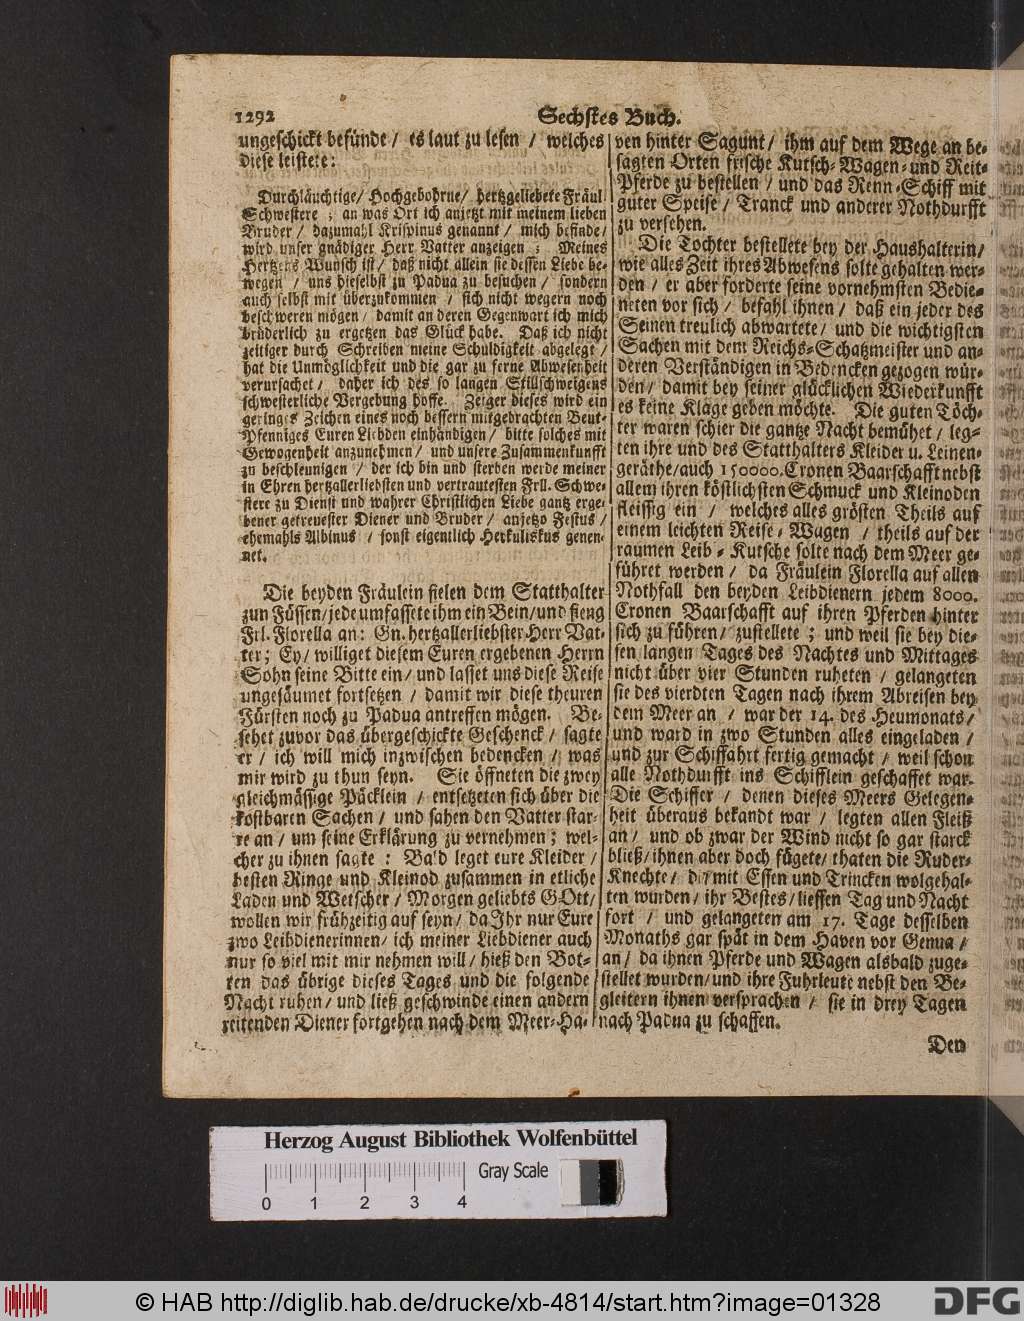 1292
Sechstes Buch.
ungeschickt befünde / es laut zu lesen / welches
diese leistete:
Durchläuchtige / Hochgebohrne / hertzgeliebete Fräul.
Schwestere ; an was Ort ich anjetzt mit meinem lieben
Bruder / dazumahl Krispinus genannt / mich befinde /
wird unser gnädiger Herr Vatter anzeigen ; Meines
Hertzens Wunsch ist / daß nicht allein sie dessen Liebe be-
wegen / uns hieselbst zu Padua zu besuchen / sondern
auch selbst mit überzukommen / sich nicht wegern noch
beschweren mögen / damit an deren Gegenwart ich mich
brüderlich zu ergetzen das Glück habe. Daß ich nicht
zeitiger durch Schreiben meine Schuldigkeit abgelegt /
hat die Unmöglichkeit und die gar zu ferne Abwesenheit
verursachet / daher ich des so langen Stillschweigens
schwesterliche Vergebung hoffe. Zeiger dieses wird ein
geringes Zeichen eines noch bessern mitgebrachten Beut-
Pfenniges Euren Liebden einhändigen / bitte solches mit
Gewogenheit anzunehmen / und unsere Zusammenkunfft
zu beschleunigen / der ich bin und sterben werde meiner
in Ehren hertzallerliebsten und vertrautesten Frll. Schwe-
stere zu Dienst und wahrer Christlichen Liebe gantz erge-
bener getreuester Diener und Bruder / anjetzo Festus /
ehemahls Albinus / sonst eigentlich Herkuliskus genen-
net.
Die beyden Fräulein fielen dem Statthalter
zun Füssen / jede umfassete ihm ein Bein / und fieng
Frl. Florella an: Gn. hertzallerliebster Herr Vat-
ter; Ey / williget diesem Euren ergebenen Herrn
Sohn seine Bitte ein / und lasset uns diese Reise
ungesäumet fortsetzen / damit wir diese theuren
Fürsten noch zu Padua antreffen mögen. Be-
sehet zuvor das übergeschickte Geschenck / sagte
er / ich will mich inzwischen bedencken / was
mir wird zu thun seyn. Sie öffneten die zwey
gleichmässige Päcklein / entsetzeten sich über die
kostbaren Sachen / und sahen den Vatter star-
re an / um seine Erklärung zu vernehmen; wel-
cher zu ihnen sagte : Bald leget eure Kleider /
besten Ringe und Kleinod zusammen in etliche
Laden und Wetscher / Morgen geliebts GOtt /
wollen wir frühzeitig auf seyn / da Ihr nur Eure
zwo Leibdienerinnen / ich meiner Liebdiener auch
nur so viel mit mir nehmen will / hieß den Bot-
ten das übrige dieses Tages und die folgende
Nacht ruhen / und ließ geschwinde einen andern
reitenden Diener fortgehen nach dem Meer-Ha-
ven hinter Sagunt / ihm auf dem Wege an be-
sagten Orten frische Kutsch-Wagen- und Reit-
Pferde zu bestellen / und das Renn-Schiff mit
guter Speise / Tranck und anderer Nothdurfft
zu versehen.
Die Tochter bestellete bey der Haushalterin /
wie alles Zeit ihres Abwesens solte gehalten wer-
den / er aber forderte seine vornehmsten Bedie-
neten vor sich / befahl ihnen / daß ein jeder des
Seinen treulich abwartete / und die wichtigsten
Sachen mit dem Reichs-Schatzmeister und an-
deren Verständigen in Bedencken gezogen wür-
den / damit bey seiner glücklichen Wiederkunfft
es keine Klage geben möchte. Die guten Töch-
ter waren schier die gantze Nacht bemühet / leg-
ten ihre und des Statthalters Kleider u. Leinen-
geräthe / auch 150000. Cronen Baarschafft nebst
allem ihren köstlichsten Schmuck und Kleinoden
fleissig ein / welches alles grösten Theils auf
einem leichten Reise-Wagen / theils auf der
raumen Leib-Kutsche solte nach dem Meer ge-
führet werden / da Fräulein Florella auf allen
Nothfall den beyden Leibdienern jedem 8000.
Cronen Baarschafft auf ihren Pferden hinter
sich zu führen / zustellete ; und weil sie bey die-
sen langen Tages des Nachtes und Mittages
nicht über vier Stunden ruheten / gelangeten
sie des vierdten Tagen nach ihrem Abreisen bey
dem Meer an / war der 14. des Heumonats /
und ward in zwo Stunden alles eingeladen /
und zur Schiffahrt fertig gemacht / weil schon
alle Nothdurfft ins Schifflein geschaffet war.
Die Schiffer / denen dieses Meers Gelegen-
heit überaus bekandt war / legten allen Fleiß
an / und ob zwar der Wind nicht so gar starck
bließ / ihnen aber doch fügete / thaten die Ruder-
Knechte / die mit Essen und Trincken wolgehal-
ten wurden / ihr Bestes / lieffen Tag und Nacht
fort / und gelangeten am 17. Tage desselben
Monaths gar spät in dem Haven vor Genua /
an / da ihnen Pferde und Wagen alsbald zuge-
stellet wurden / und ihre Fuhrleute nebst den Be-
gleitern ihnen versprachen / sie in drey Tagen
nach Padua zu schaffen.
Den
Herzog August Bibliothek Wolfenbüttel
Gray Scale
0 1 2 3 4
© HAB http://diglib.hab.de/drucke/xb-4814/start.htm?image=01328
DFG